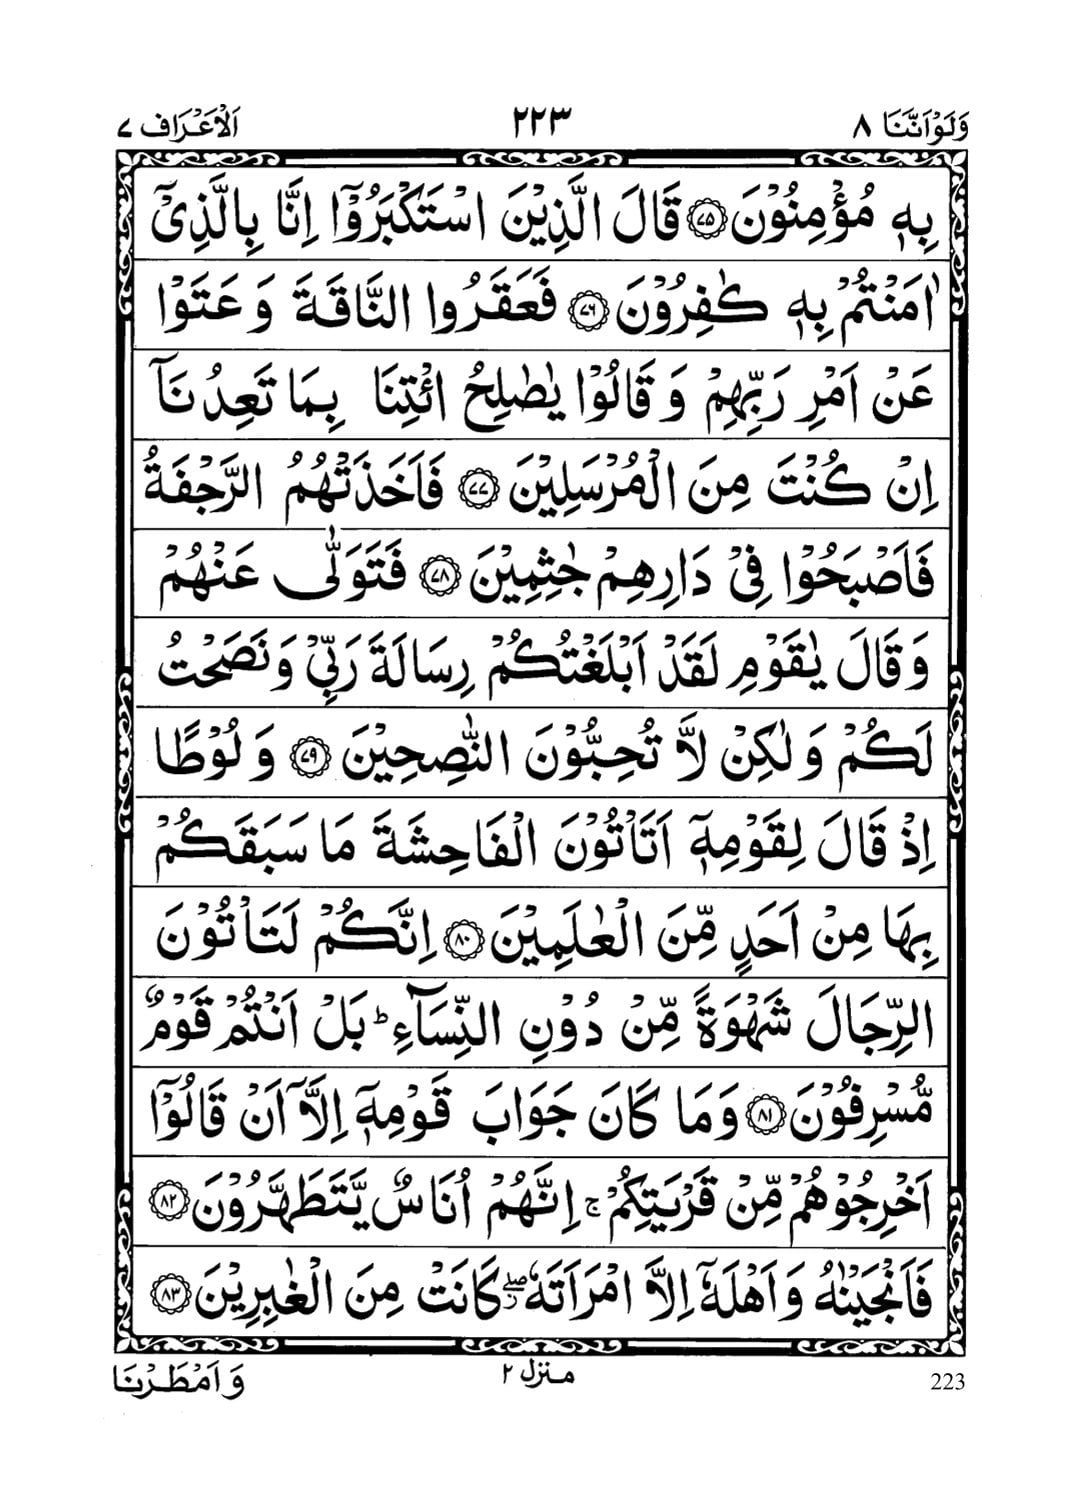 وَلَوْاَنَّنَا ٨ ٢٢٣ اَلْاَعْرَاف ٧
بِهٖ مُؤْمِنُوْنَ ﴿۷۵﴾ قَالَ الَّذِيْنَ اسْتَكْبَرُوْۤا اِنَّا بِالَّذِيْۤ
اٰمَنْتُمْ بِهٖ كٰفِرُوْنَ ﴿۷۶﴾ فَعَقَرُوا النَّاقَةَ وَعَتَوْا
عَنْ اَمْرِ رَبِّهِمْ وَقَالُوْا يٰصٰلِحُ ائْتِنَا بِمَا تَعِدُنَاۤ
اِنْ كُنْتَ مِنَ الْمُرْسَلِيْنَ ﴿۷۷﴾ فَاَخَذَتْهُمُ الرَّجْفَةُ
فَاَصْبَحُوْا فِيْ دَارِهِمْ جٰثِمِيْنَ ﴿۷۸﴾ فَتَوَلّٰى عَنْهُمْ
وَقَالَ يٰقَوْمِ لَقَدْ اَبْلَغْتُكُمْ رِسَالَةَ رَبِّيْ وَنَصَحْتُ
لَكُمْ وَلٰكِنْ لَّا تُحِبُّوْنَ النّٰصِحِيْنَ ﴿۷۹﴾ وَلُوْطًا
اِذْ قَالَ لِقَوْمِهٖۤ اَتَاْتُوْنَ الْفَاحِشَةَ مَا سَبَقَكُمْ
بِهَا مِنْ اَحَدٍ مِّنَ الْعٰلَمِيْنَ ﴿۸۰﴾ اِنَّكُمْ لَتَاْتُوْنَ
الرِّجَالَ شَهْوَةً مِّنْ دُوْنِ النِّسَآءِ ؕ بَلْ اَنْتُمْ قَوْمٌ
مُّسْرِفُوْنَ ﴿۸۱﴾ وَمَا كَانَ جَوَابَ قَوْمِهٖۤ اِلَّاۤ اَنْ قَالُوْۤا
اَخْرِجُوْهُمْ مِّنْ قَرْيَتِكُمْ ۚ اِنَّهُمْ اُنَاسٌ يَّتَطَهَّرُوْنَ ﴿۸۲﴾
فَاَنْجَيْنٰهُ وَاَهْلَهٗۤ اِلَّا امْرَاَتَهٗ ۖ كَانَتْ مِنَ الْغٰبِرِيْنَ ﴿۸۳﴾
223 منزل ٢ وَاَمْطَرْنَا